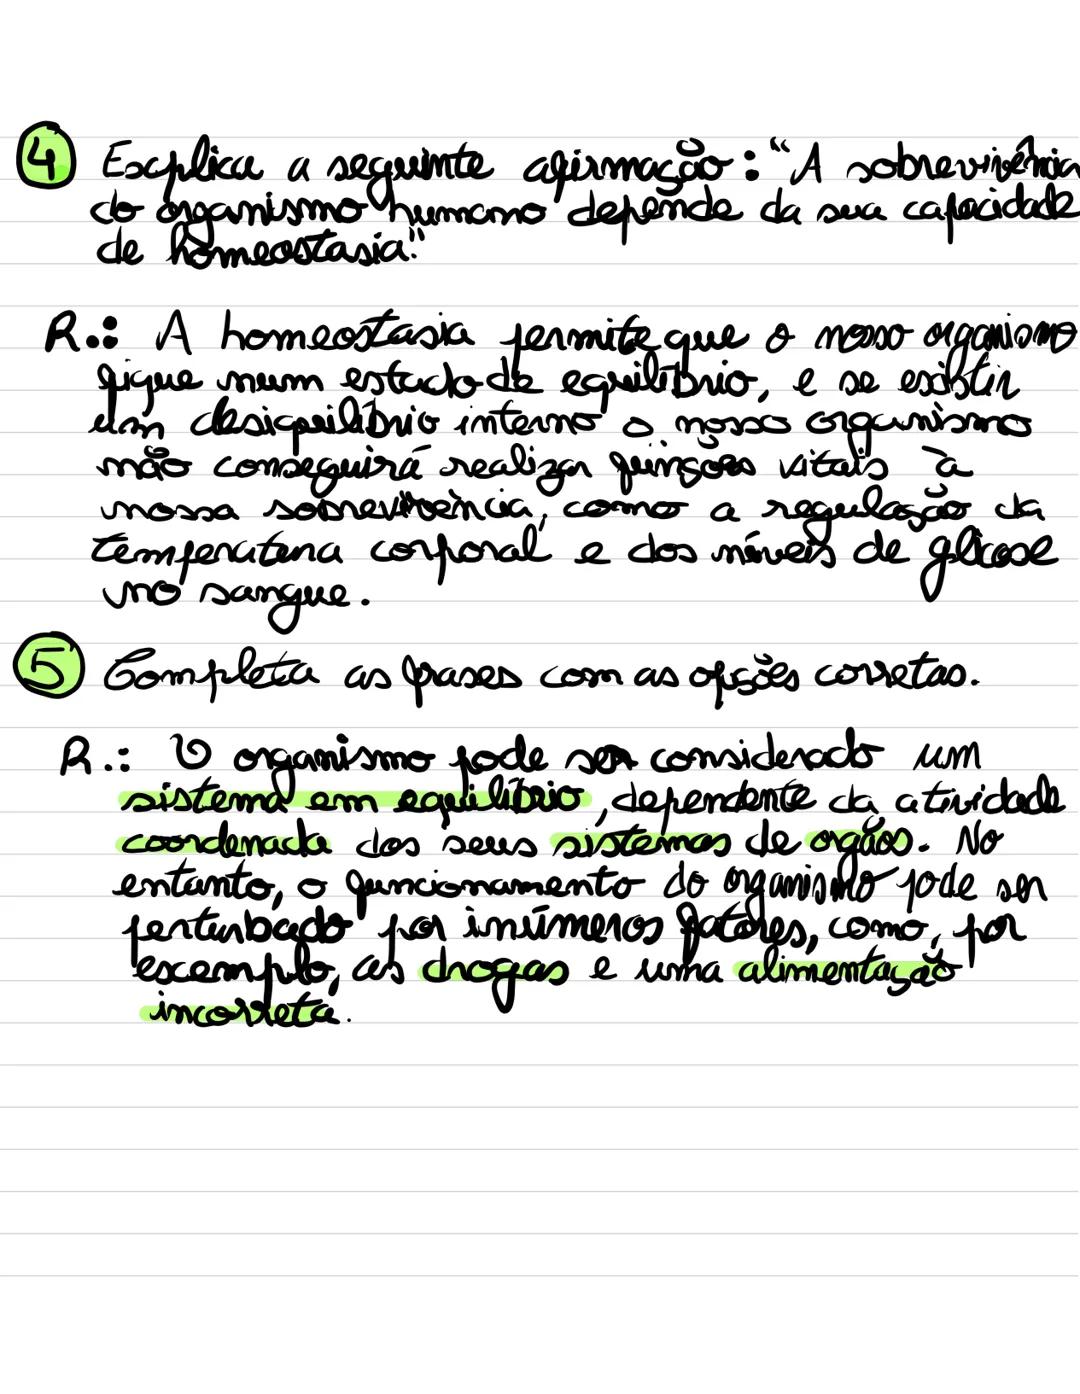 4 Explica a seguinte afirmação: "A sobrevivência
do organismo humano depende da sua capacidade
de homeostasia."
R.: A homeostasia permite que o nosso organismo
fique num estado de equilíbrio, e se existir
um desiquilíbrio interno o nosso organismo
não conseguirá realizar funções vitais à
nossa sobrevivência, como a regulação da
temperatura corporal e dos níveis de glicose
no sangue.
5 Completa as frases com as opções corretas.
R.: O organismo pode ser considerado um
sistema em equilíbrio, dependente da atividade
coordenada dos seus sistemas de orgãos. No
entanto, o funcionamento do organismo pode ser
perturbado por inúmeros fatores, como, por
exemplo, as drogas e uma alimentação
incorreta.